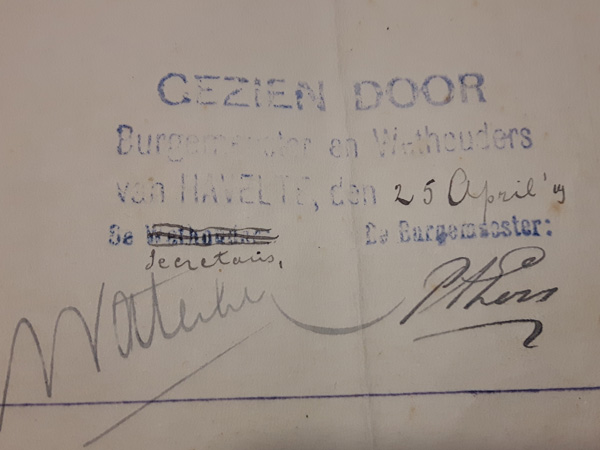 GEZIEN DOOR
Burgemeester en Wethouders
van HAVELTE, den 25 April '19
De Wethouder De Burgemeester:
Secretaris,